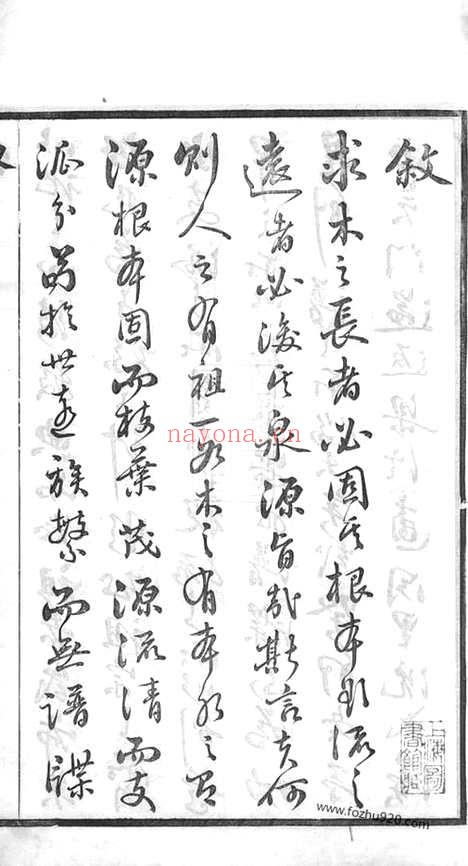 敘
求木之長者必固其根本欲流之
遠者必浚其泉源旨哉斯言夫何
則人之有祖一如木之有本水之有
源根本固而枝葉茂源流清而支
派分苟於世遠族繁而無譜牒
上海圖
書館藏
nayona.cn
www.fozhu920.com